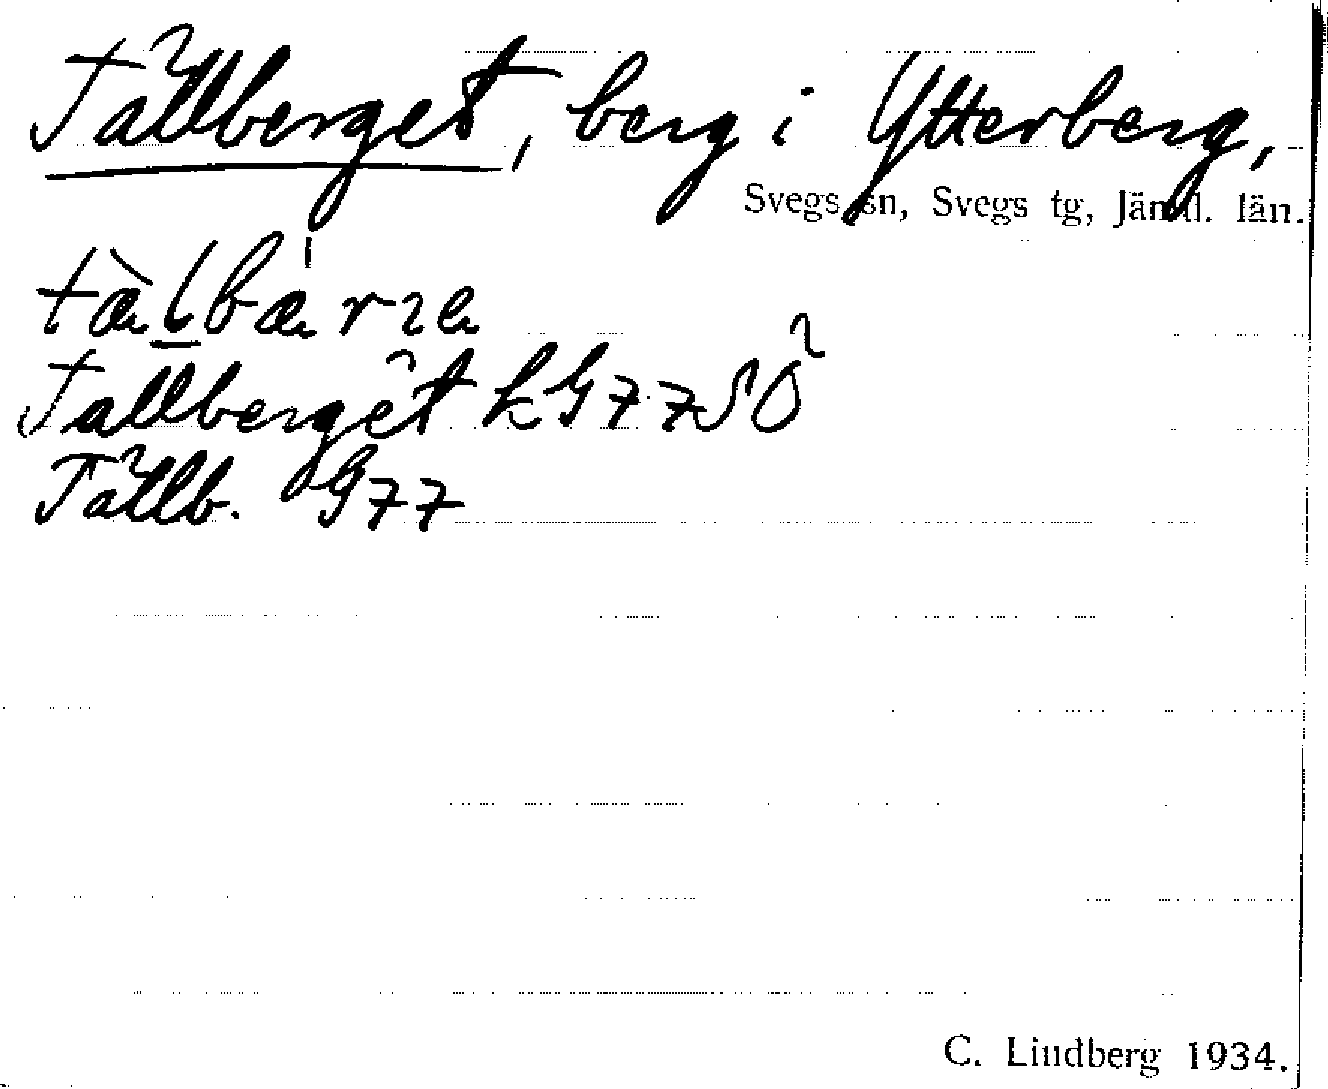 Tållberget, berg i Ytterberg,
Svegs sn, Svegs tg, Jämtl. län.
Tallberget k G 77 SÖ
Tållb. G 77
C. Lindberg 1934.